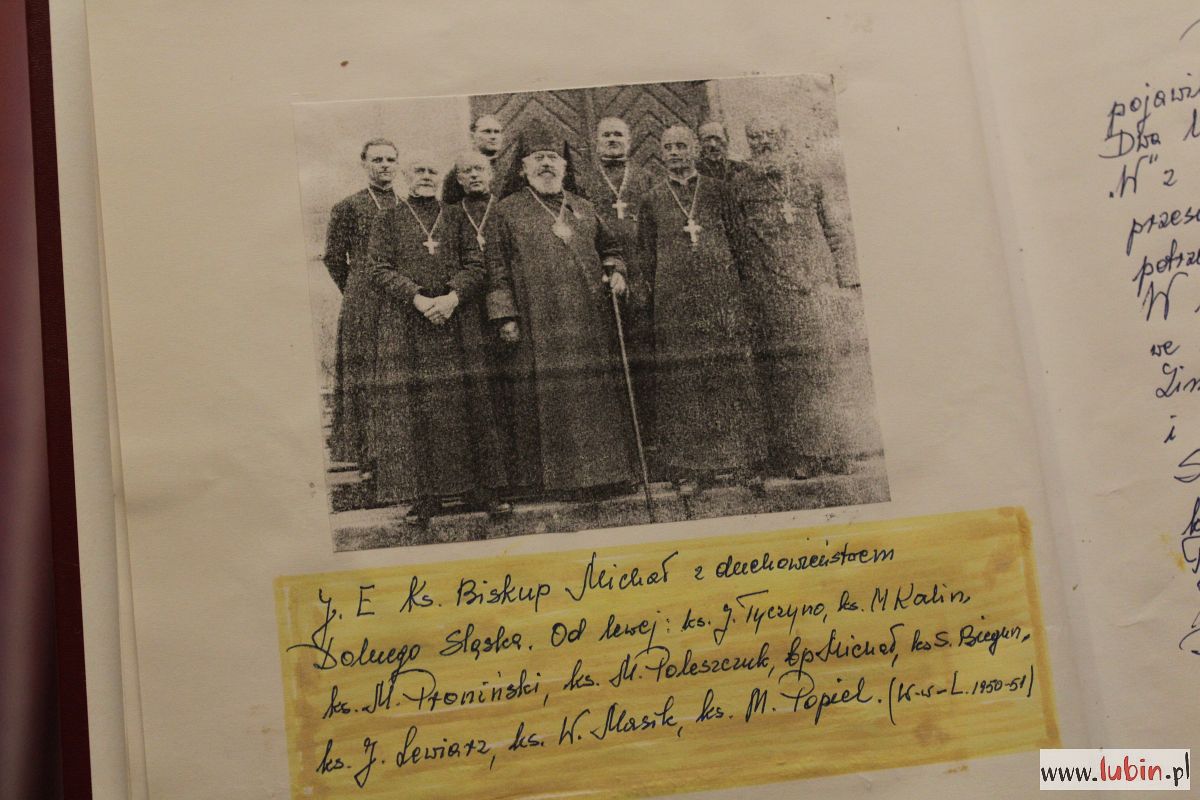 J. E Ks. Biskup Michał z duchowieństwem
Dolnego Śląska. Od lewej: ks. J. Tyczyno, ks. M Kalin,
ks. M. Proniński, ks. M. Poleszczuk, bp Michał, ks S. Biegun,
ks. J. Lewiarz, ks. W. Masik, ks. M. Popiel. (W-w-L. 1950-51)
pojawi
Dwa
"W" z
przesc
potrze
W
we
i
www.lubin.pl